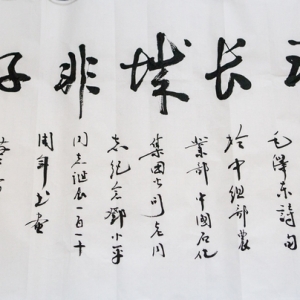 长城非
毛澤东詩句
於中组部農
業部中国石化
集团公司老同
志纪念鄧小平
同志诞辰一百一十
周年书画